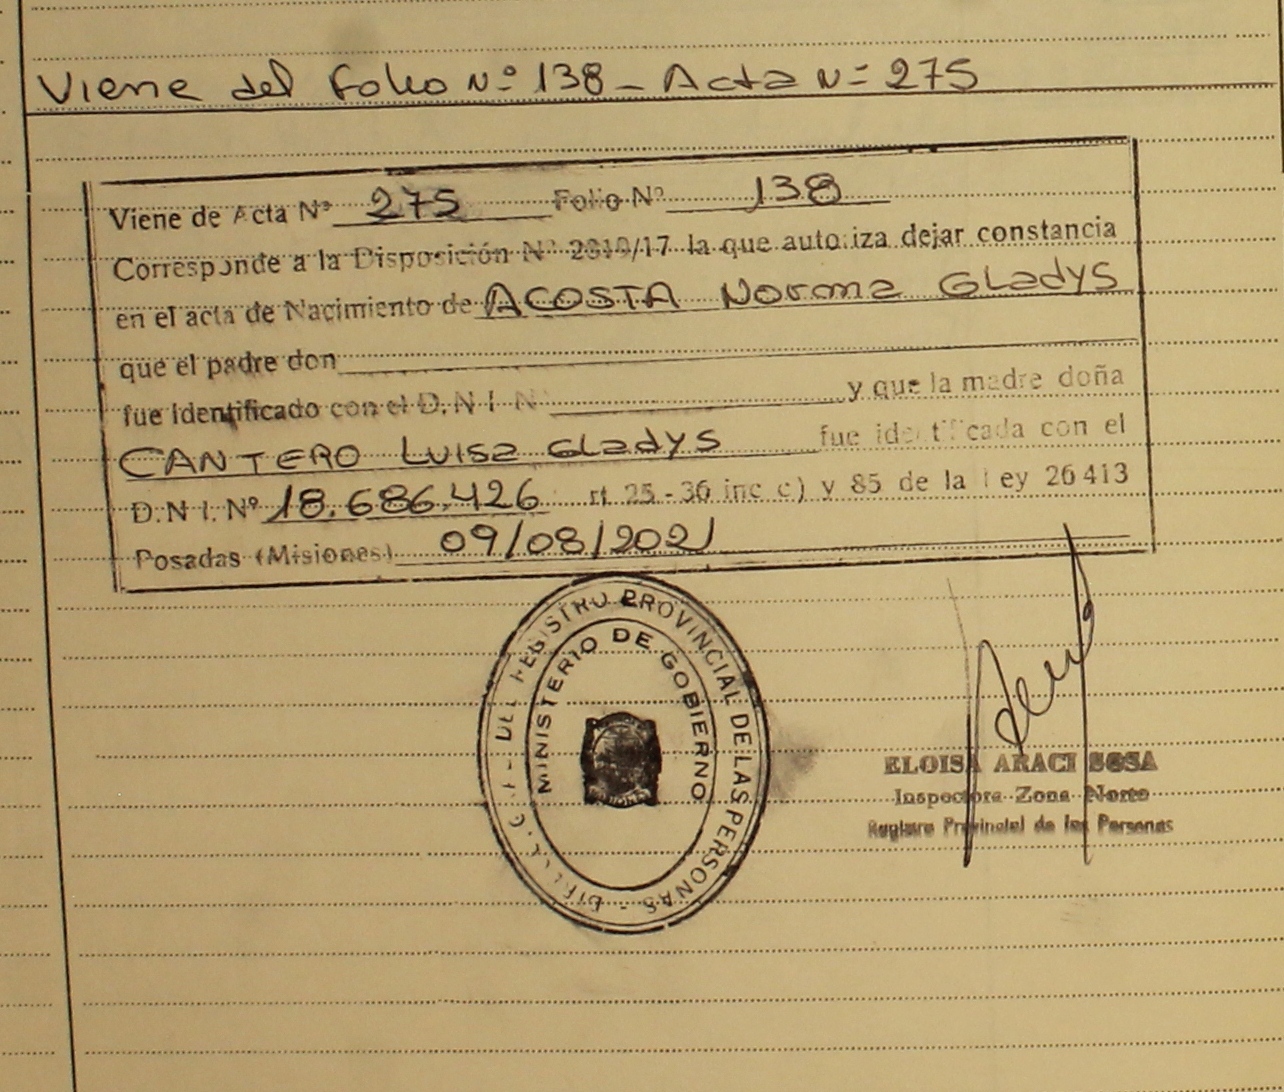 Viene del Folio Nº 138 - Acta Nº 275
Viene de Acta Nº 275 Folio Nº 138
Corresponde a la Disposición Nº /17 la que autoriza dejar constancia
en el acta de Nacimiento de ACOSTA Norma Gladys
que el padre don
fue identificado con el D.N.I. Nº y que la madre doña
CANTERO Luisa Gladys fue identificada con el
D.N.I. Nº 18.686.426 rt. 25 - 36 inc c) y 85 de la Ley 26 413
Posadas (Misiones) 09/08/2021
REGISTRO PROVINCIAL DE LAS PERSONAS
MINISTERIO DE GOBIERNO
ELOISA ARACI SOSA
Inspectora Zona Norte
Registro Provincial de las Personas